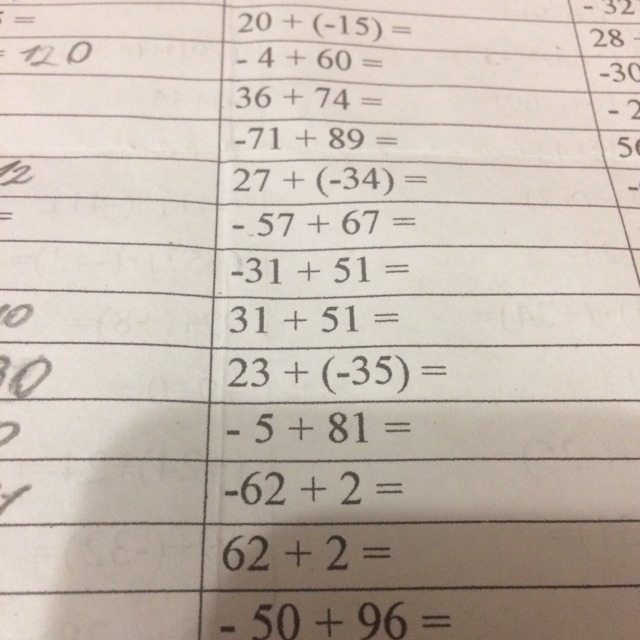 =
20 + (-15) =
-32
= 120
- 4 + 60 =
28
36 + 74 =
-30
-71 + 89 =
- 2
12
27 + (-34) =
=
-.57 + 67 =
-31 + 51 =
10
31 + 51 =
23 + (-35) =
- 5 + 81 =
-62 + 2 =
62 + 2 =
- 50 + 96 =